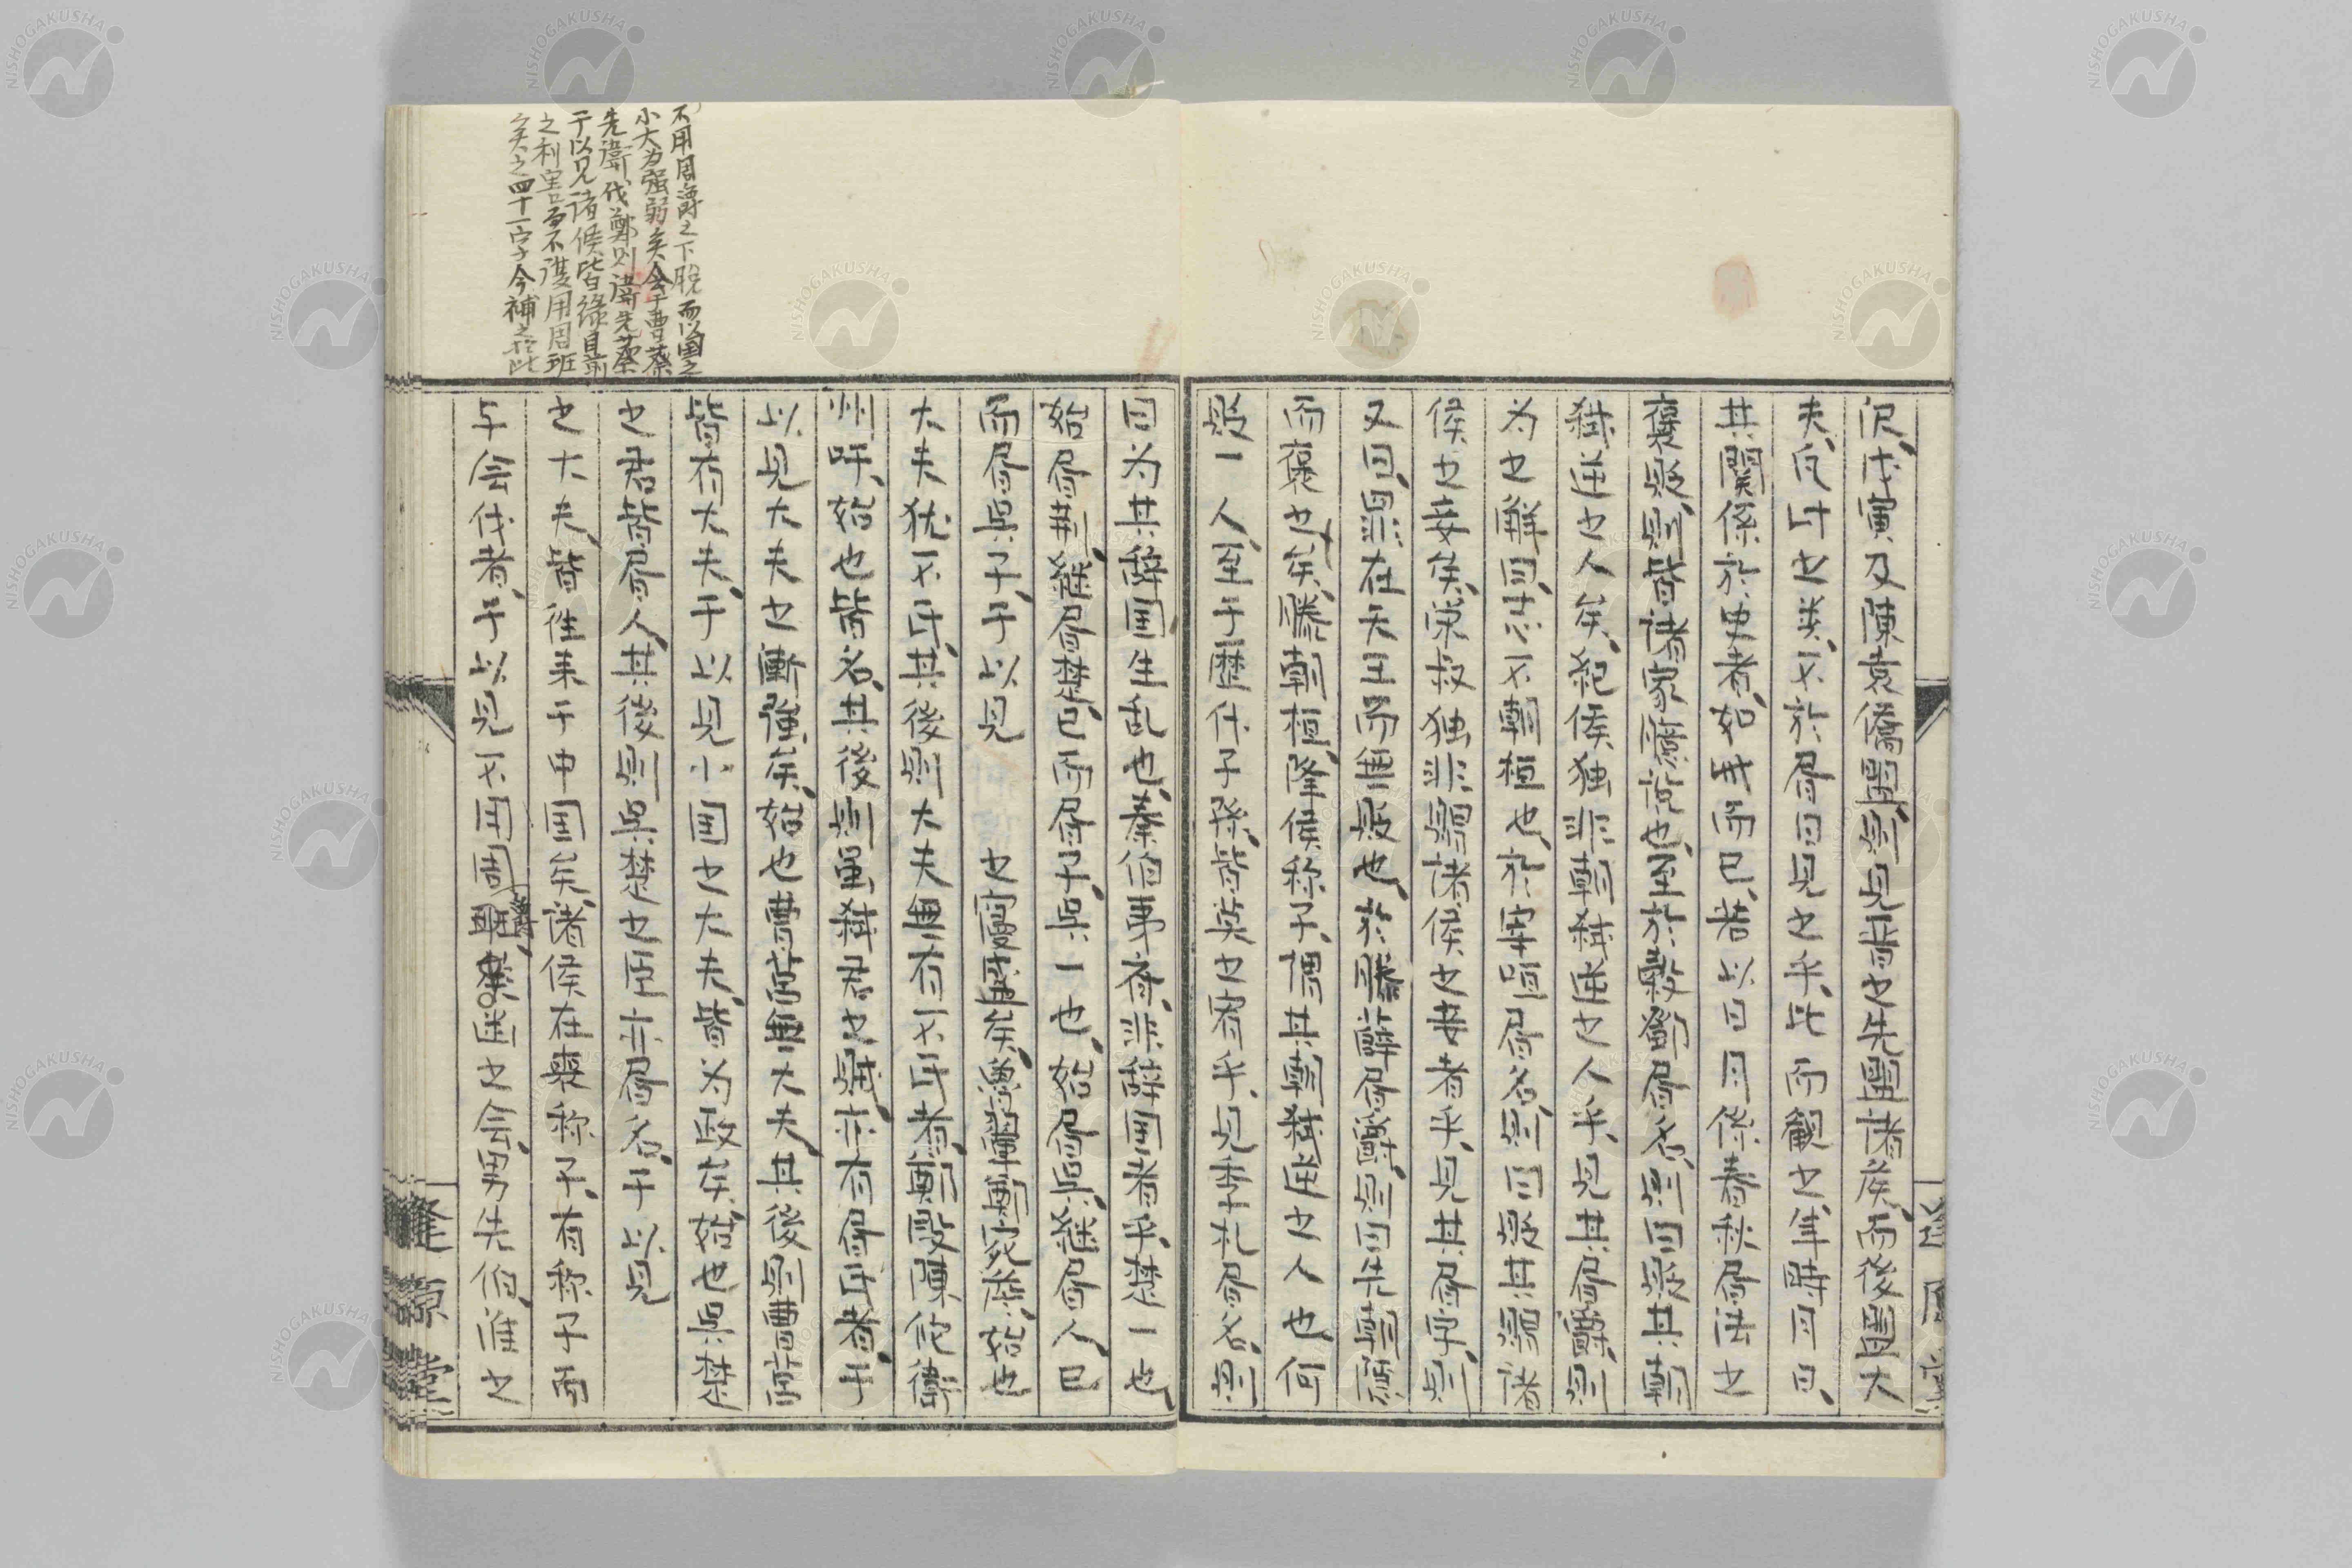 侯戊寅及陳袁僑盟則見昔之先盟諸侯而後盟大
夫凡此之类不於屑日見之乎此而觀之年時月日
其関係於史者如此而已若以日月係春秋屑法之
褒貶則皆諸家臆説也至於穀鄧屑名則曰貶其朝
弑逆之人矣紀侯独非朝弑逆之人乎見其屑爵則
为之解曰志不朝桓也於宰咺屑名則曰貶其賵諸
侯之妾矣荣叔独非賵諸侯之妾者乎見其屑字則
又曰罪在天王而無貶也於滕薛屑爵則曰先朝隱
而褒之矣滕朝桓降侯称子謂其朝弑逆之人也何
貶一人至于歷代子孫皆英之宥乎見季札屑名則
曰为其辞国生乱也秦伯事夜非辞国者乎楚一也
始屑荆継屑楚已而屑子吳一也始屑吳継屑人已
而屑吳子于以見　　之寖盛矣魯翬鄭宛詹始也
大夫犹不氏其後則大夫無有不氏者鄭段陳佗衛
州吁始也皆名其後則虽弑君之賊亦有屑氏者于
以見大夫之漸強矣始也曹莒無大夫其後則曹莒
皆有大夫于以見小国之大夫皆为政矣始也吳楚
之君皆屑人其後則吳楚之臣亦屑名于以見
之大夫皆往来于中国矣諸侯在喪称子有称子而
与会伐者于以見不用周爵之会男先伯淮之
不用周爵之下脱而以国之
小大为强弱矣会于曹蔡
先衛伐鄭則衛先蔡
于以見諸侯皆緣目前
之利害而不復用周班
矣之四十一字今補之於此
逢源堂